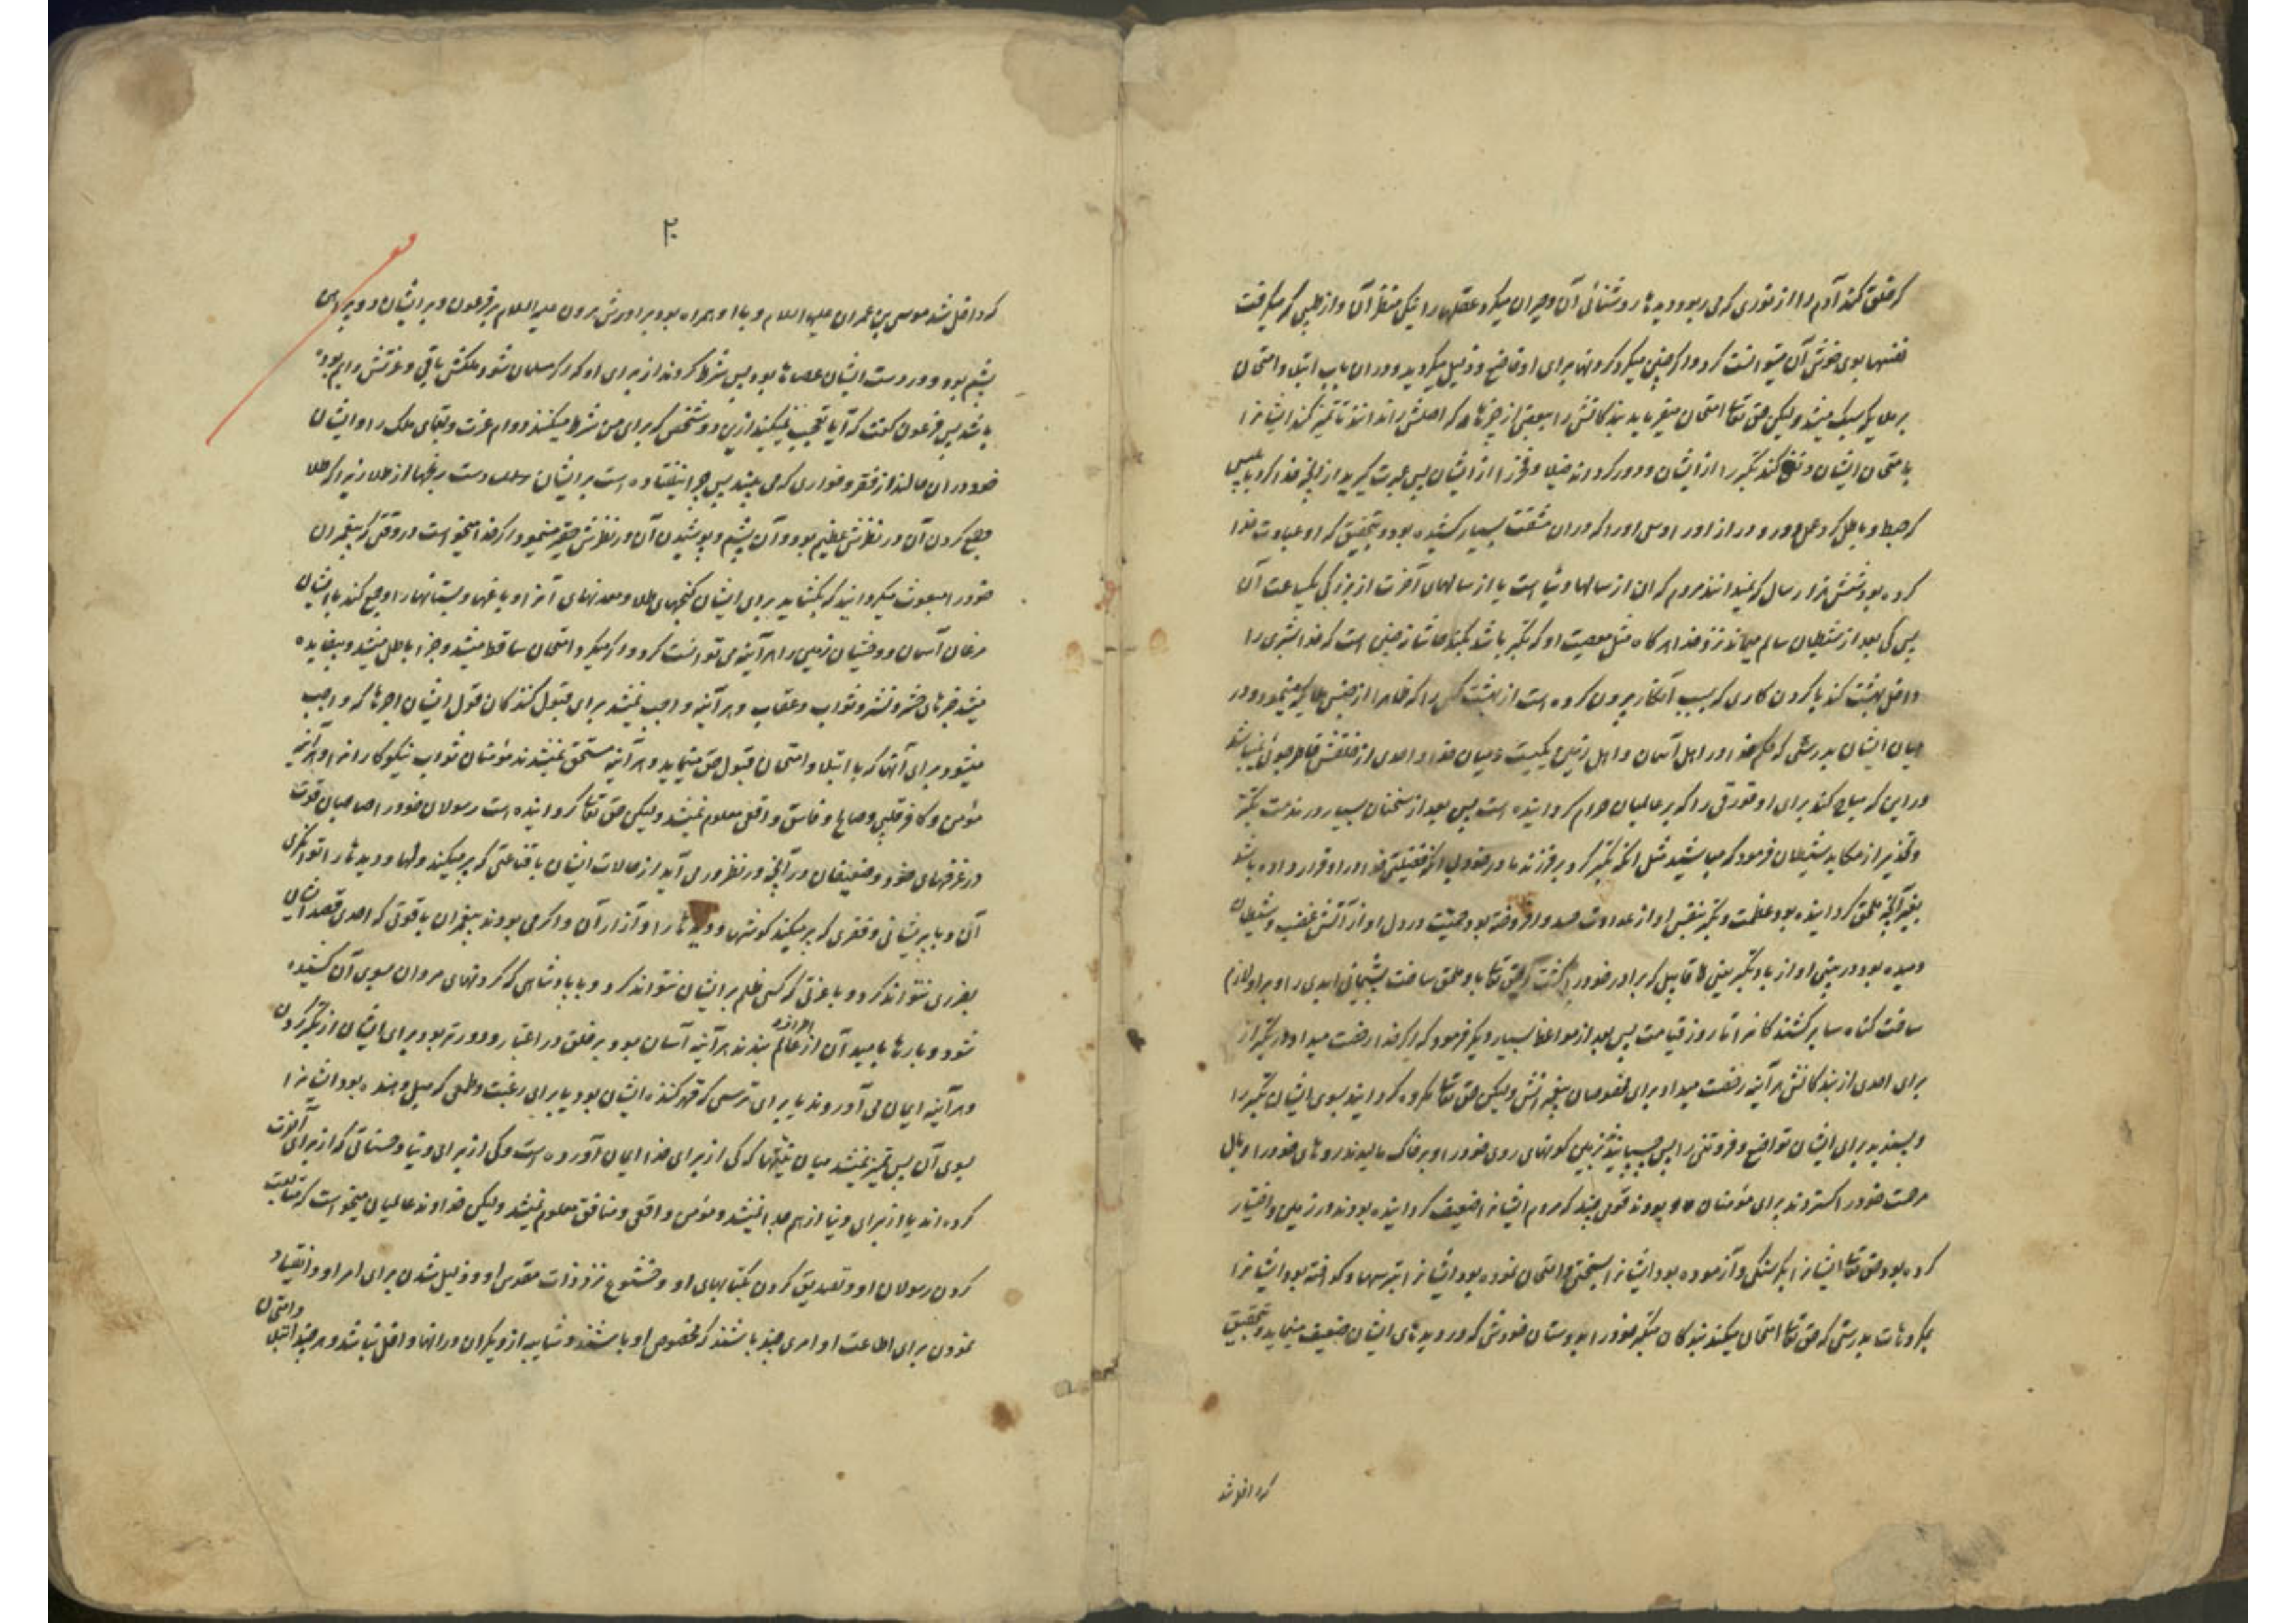 که خلق کند آدم را از نوری که می ربود دیدها روشنائی آن و حیران میکرد عقلها را نیکی منظر آن و از طیبی که میگرفت
نفسها بوی خوش آن میتوانست کرد و اگر چنین میکرد گردنها برای او خاضع و ذلیل میگردید و در آن باب ابتلا و امتحان
بر ملایکه سبک میشد و لیکن حق تعالی امتحان میفرماید بندگانش را ببعضی از چیزها که اصلش را ندانند تا تمیز کند ایشانرا
بامتحان ایشان و نفی کند تکبر را از ایشان و دور گرداند خیلا و فخر را از ایشان پس عبرت گیرید از آنچه خدا کرد بابلیس
که حبط و باطل کرد عمل دور و دراز او را و سعی او را که در آن مشقت بسیار کشیده بود و بتحقیق که او عبادت خدا
کرده بود شش هزار سال که نمیدانند مردم که آن از سالهای دنیا است یا از سالهای آخرت از بزرگی یکساعت آن
پس کی بعد از شیطان سالم میماند نزد خدا هرگاه مثل معصیت او که تکبر باشد بکند حاشا نه چنین است که خدا بشری را
داخل بهشت کند با کردن کاری که بسبب آنکار بیرون کرده است از بهشت کسی را که ظاهرا از جنس ملایکه مینمود و در
میان ایشان بدرستی که حکم خدا در اهل آسمان و اهل زمین یکیست و میان خدا و احدی از خلقش خاطرجوئی نمیباشد
در این که مباح کند برای او قورقی را که بر عالمیان حرام گردانیده است پس بعد از سخنان بسیار در مذمت تکبر
و تحذیر از مکاید شیطان فرمود که مباشید مثل آنکه تکبر کرد بر فرزند مادر خود بی آنکه فضیلتی خدا در او قرار داده باشد
بغیر آنچه ملحق گردانیده بود عظمت و تکبر بنفس او از عداوت حسد و افروخته بود حمیت در دل او از آتش غضب و شیطان
دمیده بود در بینی او از باد تکبر یعنی قابیل که برادر خود را کشت و حق تعالی باو ملحق ساخت پشیمانی ابدی را و بر او لازم
ساخت گناه سایر کشندگان را تا روز قیامت پس بعد از مواعظ بسیار دیگر فرمود که اگر خدا رخصت میداد در تکبر از
برای احدی از بندگانش هر آینه رخصت میداد برای مخصوصان پیغمبرانش ولیکن حق تعالی مکروه گردانید بسوی ایشان تکبر را
و پسندید برای ایشان تواضع و فروتنی را پس چسبانیدند بزمین گونهای روی خود را و بر خاک مالیدند روهای خود را و بال
مرحمت خود را گستردند برای مؤمنان و بودند قومی چند که مردم ایشانرا ضعیف گردانیده بودند در زمین و اختیار
کرده بود حق تعالی ایشانرا بگرسنگی و آزموده بود ایشانرا بسختی و امتحان نموده بود ایشانرا بترسها و گداخته بود ایشانرا
بمکروهات بدرستی که حق تعالی امتحان میکند بندگان متکبر خود را بدوستان خودش که در دیدهای ایشان ضعیف مینماید و بتحقیق
که داخل شد
۲۰
که داخل شد موسی بن عمران علیه السلام و با او همراه بود برادرش هرون علیه السلام بر فرعون و بر ایشان دو پیراهن
پشم بود و در دست ایشان عصاها بود پس شرط کردند از برای او که اگر مسلمان شود ملکش باقی و عزتش دایم بوده
باشد پس فرعون گفت که آیا تعجب نمیکنید ازین دو شخص که برای من شرط میکنند دوام عزت و بقای ملک را و ایشان
خود در آن حالند از فقر و خواری که می بینید پس چرا نیفتاده است بر ایشان دست رنجها از طلا زیرا که طلا
و جمع کردن آن در نظرش عظیم بود و آن پشم و پوشیدن آن در نظرش حقیر مینمود و اگر خدا میخواست در وقتی که پیغمبران
خود را مبعوث میگردانید که بگشاید برای ایشان گنجهای طلا و معدنهای آنرا و باغها و بستانها را و جمع کند با ایشان
مرغان آسمان و وحشیان زمین را هر آینه می توانست کرد و اگر میکرد امتحان ساقط میشد و جزا باطل میشد و بیفایده
میشد خبرهای حشر و نشر و ثواب و عقاب و هر آینه واجب نمیشد برای قبول کنندگان قول ایشان اجرها که واجب
میشود برای آنها که با ابتلا و امتحان قبول حق مینماید و هر آینه مستحق نمیشدند مؤمنان ثواب نیکوکارانرا و هر آینه
مؤمن و کافر قلبی و صالح و فاسق واقعی معلوم نمیشد ولیکن حق تعالی گردانیده است رسولان خود را صاحبان قوت
در عزمهای خود و ضعیفان در آنچه در نظر در می آید از حالات ایشان با قناعتی که پر میکند دلها و دیدها را توانگری
آن و با پریشانی و فقری که پر میکند گوشها و دیدها را و آزار آن و اگر می بودند پیغمبران با قوتی که احدی قصد ایشان
بضرری نتواند کرد و با عزتی که کسی ظلم بر ایشان نتواند کرد و با پادشاهی که گردنهای مردان بسوی آن کشیده
شود و بارها بامید آن از اطراف عالم بندند هر آینه آسان بود بر خلق در اعتبار و دورتر بود برای ایشان از تکبر کردن
و هر آینه ایمان می آوردند یا برای ترسی که قهر کننده ایشان بود یا برای رغبت و طمعی که میل دهنده بود ایشانرا
بسوی آن پس تمیز نمیشد میان نیتها که کی از برای خدا ایمان آورده است و کی از برای دنیا و حسناتی که از برای آخرت
کرده اند یا از برای دنیا از هم جدا نمیشد و مؤمن واقعی و منافق معلوم نمیشد ولیکن خداوند عالمیان میخواست که متابعت
کردن رسولان او و تصدیق کردن بکتابهای او و خشوع نزد ذات مقدس او و ذلیل شدن برای امر او و انقیاد
نمودن برای اطاعت او امری چند باشند که مخصوص او باشند و شایبه از دیگران در آنها داخل نباشد و هر چند ابتلا و امتحان